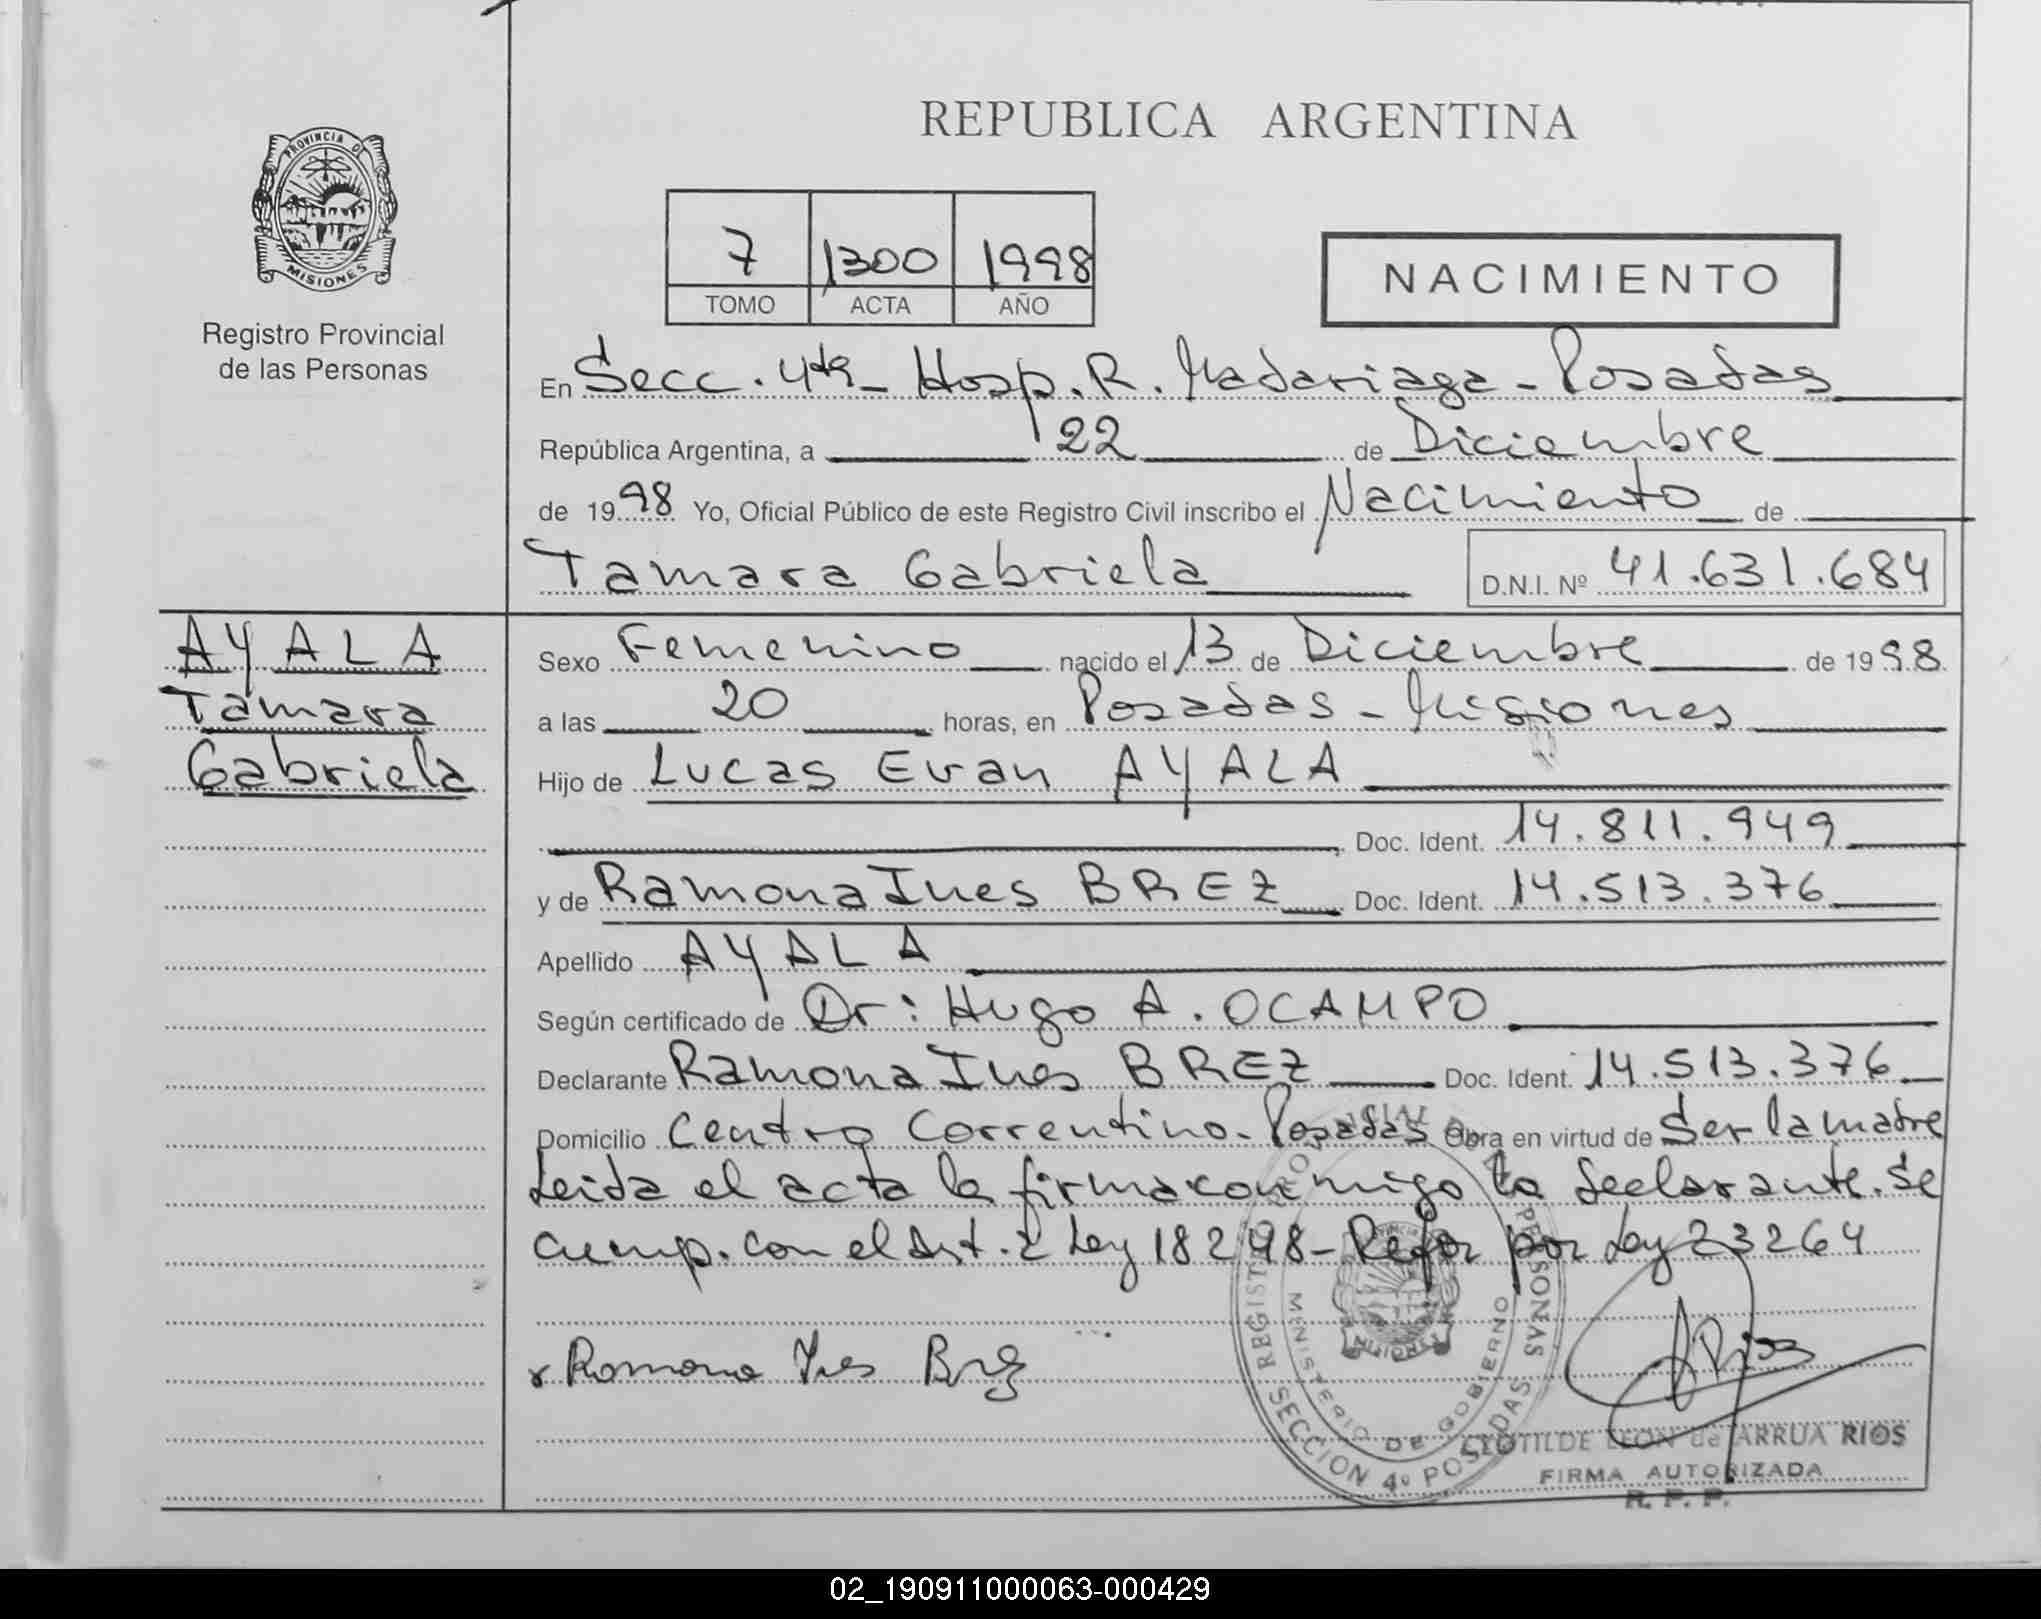 REPUBLICA ARGENTINA
PROVINCIA DE
MISIONES
Registro Provincial
de las Personas
7 1300 1998
TOMO ACTA AÑO
NACIMIENTO
En Secc. 4ta - Hosp. R. Madariaga - Posadas
República Argentina, a 22 de Diciembre
de 1998 Yo, Oficial Público de este Registro Civil inscribo el Nacimiento de
Tamara Gabriela D.N.I. Nº 41.631.684
AYALA
Tamara
Gabriela
Sexo Femenino nacido el 13 de Diciembre de 1998
a las 20 horas, en Posadas - Misiones
Hijo de Lucas Evan AYALA
Doc. Ident. 14.811.949
y de Ramona Ines BREZ Doc. Ident. 14.513.376
Apellido AYALA
Según certificado de Dr: Hugo A. OCAMPO
Declarante Ramona Ines BREZ Doc. Ident. 14.513.376
Domicilio Centro Correntino - Posadas Obra en virtud de Ser la madre
Leida el acta la firma conmigo la declarante. Se
cump. con el Art. 2 Ley 18298 - Refor por Ley 23264
x Ramona Ines Brez
REGISTRO PROVINCIAL DE LAS PERSONAS
MINISTERIO DE GOBIERNO
MISIONES
SECCION 4º POSADAS
CLOTILDE LEON de ARRUA RIOS
FIRMA AUTORIZADA
R. P. P.
02_190911000063-000429